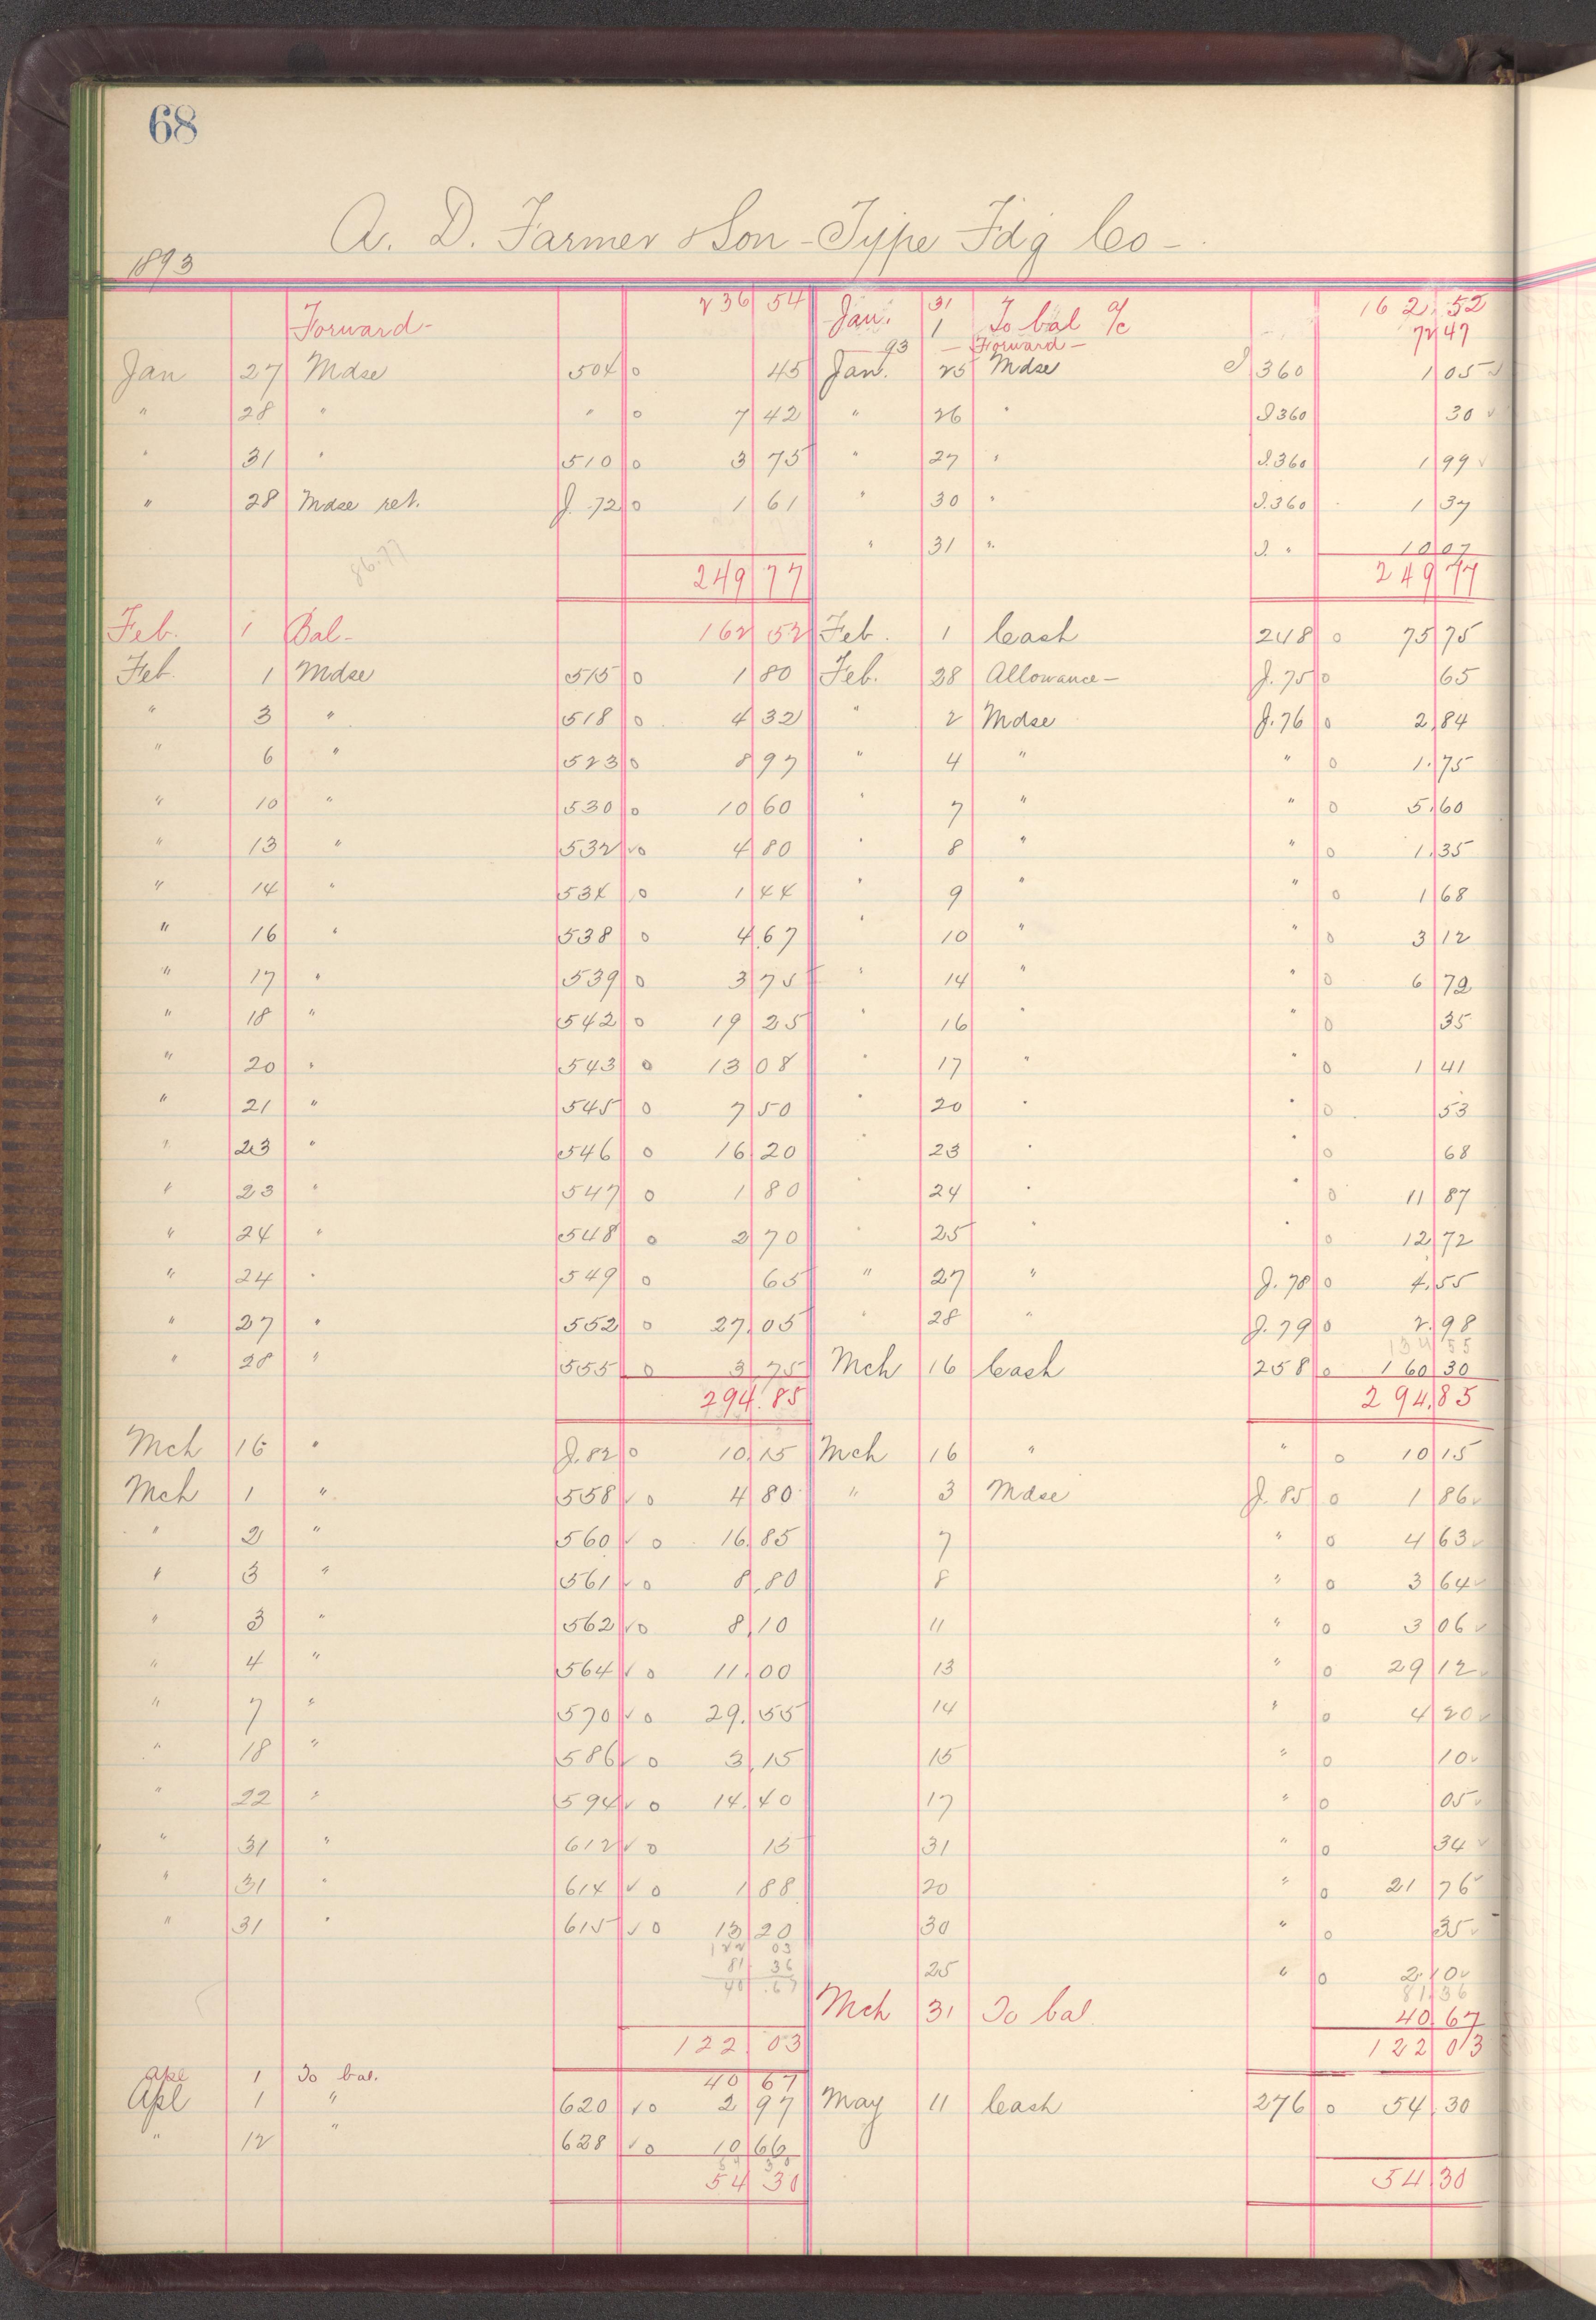 68
A. D. Farmer & Son - Type Fdg Co -
1893
Forward - 236 54 Jan. 31 To bal a/c 162.52
1 Forward - 72 47
Jan 27 Mdse 504 0 45 93 Jan. 25 Mdse J 360 1 05 ✓
" 28 " " 0 7 42 " 26 " J 360 30 ✓
" 31 " 510 0 3 75 " 27 " J. 360 1 99 ✓
" 28 Mdse ret. J. 72 0 1 61 " 30 " J. 360 1 37
" 31 " J. " 10 07
86.77
249 77 249 77
Feb. 1 Bal - 162 52 Feb. 1 Cash 248 0 75 75
Feb. 1 Mdse 515 0 1 80 Feb. 28 Allowance - J. 75 0 65
" 3 " 518 0 4 32 " 2 Mdse J. 76 0 2 84
" 6 " 523 0 8 97 " 4 " " 0 1.75
" 10 " 530 0 10 60 " 7 " " 0 5.60
" 13 " 532 ✓0 4 80 " 8 " " 0 1.35
" 14 " 534 0 1 44 " 9 " " 0 1 68
" 16 " 538 0 4.67 " 10 " " 0 3 12
" 17 " 539 0 3 75 " 14 " " 0 6 72
" 18 " 542 0 19 25 " 16 " " 0 35
" 20 " 543 0 13 08 " 17 " " 0 1 41
" 21 " 545 0 7 50 " 20 " " 0 53
" 23 " 546 0 16 20 " 23 " " 0 68
" 23 " 547 0 1 80 " 24 " " 0 11 87
" 24 " 548 0 2 70 " 25 " " 0 12 72
" 24 " 549 0 65 " 27 " J. 78 0 4.55
" 27 " 552 0 27.05 " 28 " J. 79 0 2.98
134 55
" 28 " 555 0 3 75 Mch 16 Cash 258 0 160 30
294.85 294.85
Mch 16 " J. 82 0 10.15 Mch 16 " " 0 10 15
Mch 1 " 558 ✓ 0 4 80 " 3 Mdse J. 85 0 1 86 ✓
" 2 " 560 ✓ 0 16.85 7 " 0 4 63 ✓
" 3 " 561 ✓ 0 8.80 8 " 0 3 64 ✓
" 3 " 562 ✓ 0 8.10 11 " 0 3 06 ✓
" 4 " 564 ✓ 0 11.00 13 " 0 29 12 ✓
" 7 " 570 ✓ 0 29.55 14 " 0 4 20 ✓
" 18 " 586 ✓ 0 3.15 15 " 0 10 ✓
" 22 " 594 ✓ 0 14.40 17 " 0 05 ✓
" 31 " 612 ✓ 0 15 31 " 0 34 ✓
" 31 " 614 ✓ 0 1 88 20 " 0 21 76 ✓
" 31 " 615 ✓ 0 13 20 30 " 0 35 ✓
122 03
81 36 25 " 0 2.10 ✓
40.67 81.36
Mch 31 To bal 40 67
122 03 122 03
Apl 1 To bal. 40 67
Apl 1 " 620 ✓0 2 97 May 11 Cash 276 0 54.30
" 12 " 628 ✓0 10 66
54 30
54 30 54.30